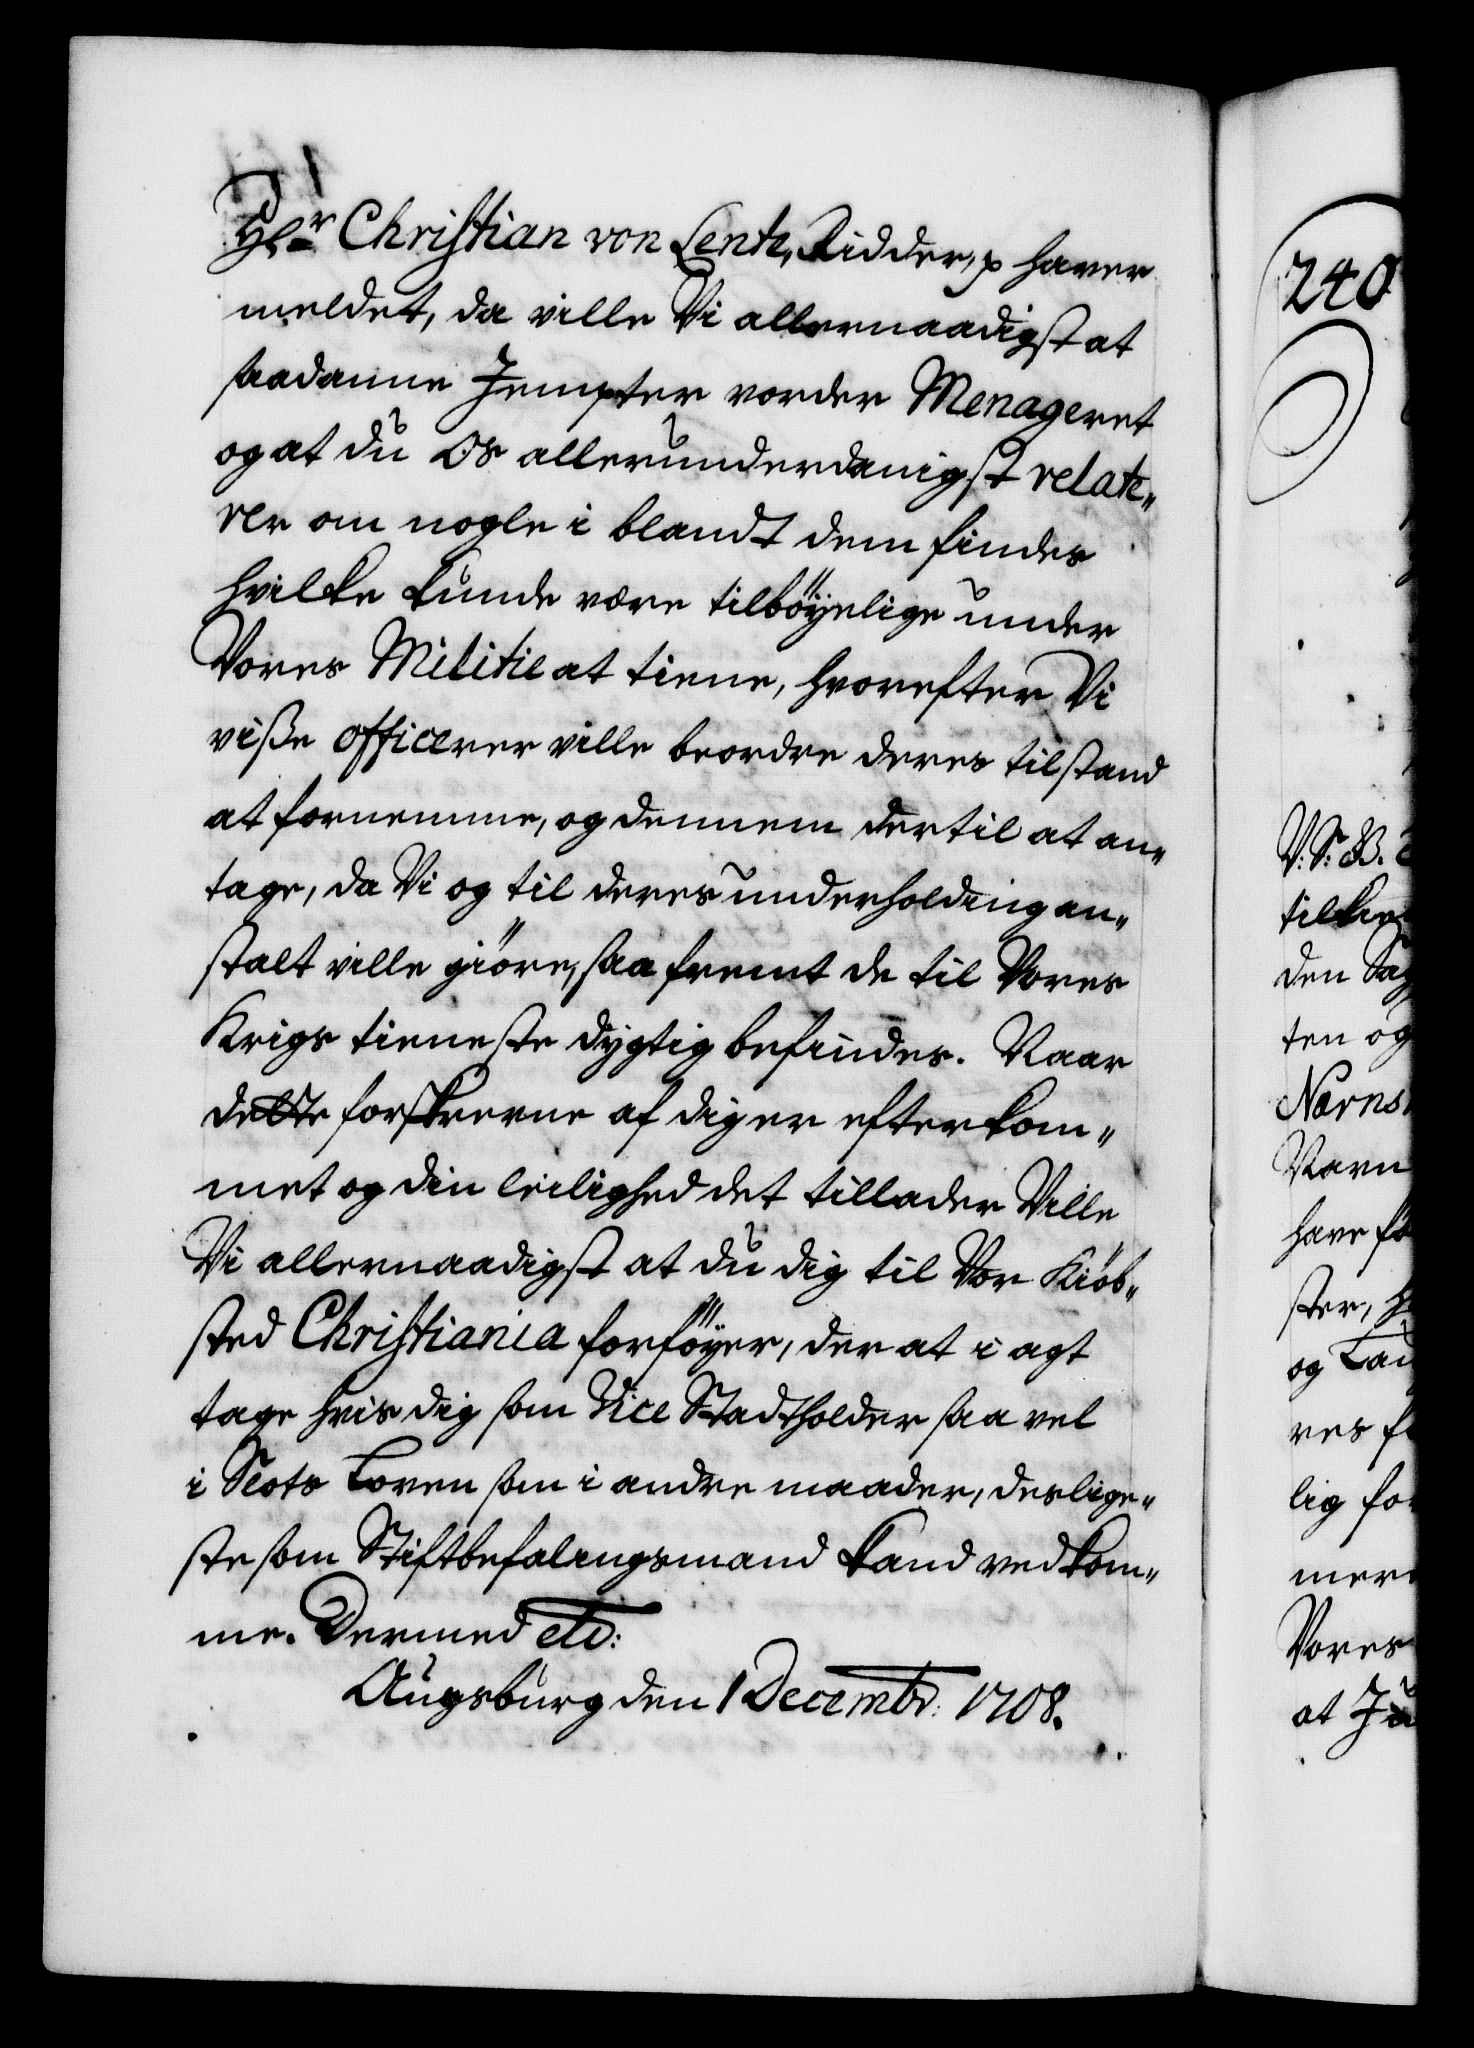 Hr Christian von Lente, Ridder, p haver
meldet, da ville Vi allernaadigst at
saadanne Jempter vorder Menageret
og at du Os allerunderdanigst relate„
rer om nogle i blandt dem findes
hvilke kunde vere tilböyelige under
Vores Militie at tiene, hvorefter Vi
viße officerer ville beordre deres tilstand
at fornemme, og dennem dertil at an„
tage, da Vi og til deres underholding an„
stalt ville giöre, saa fremt de til Vores
Krigs tieneste dygtig befindes. Naar
dette forskrevne af dig er efterkom„
met og din leilighed det tillader Ville
Vi allernaadigst at du dig til Vor Kiöb„
sted Christiania forföyer, der at i agt
tage hvis dig som Vice Stadtholder saa vel
i Slots Loven som i andre maader, deslige„
ste som Stiftbefalingsmand kand vedkom„
me. Dermed etc:
Augsburg den 1 Decembr: 1708.
240
V: S: B.
den Sag
ten og
Navn
have
ster,
og
res
lig for
Vores
at